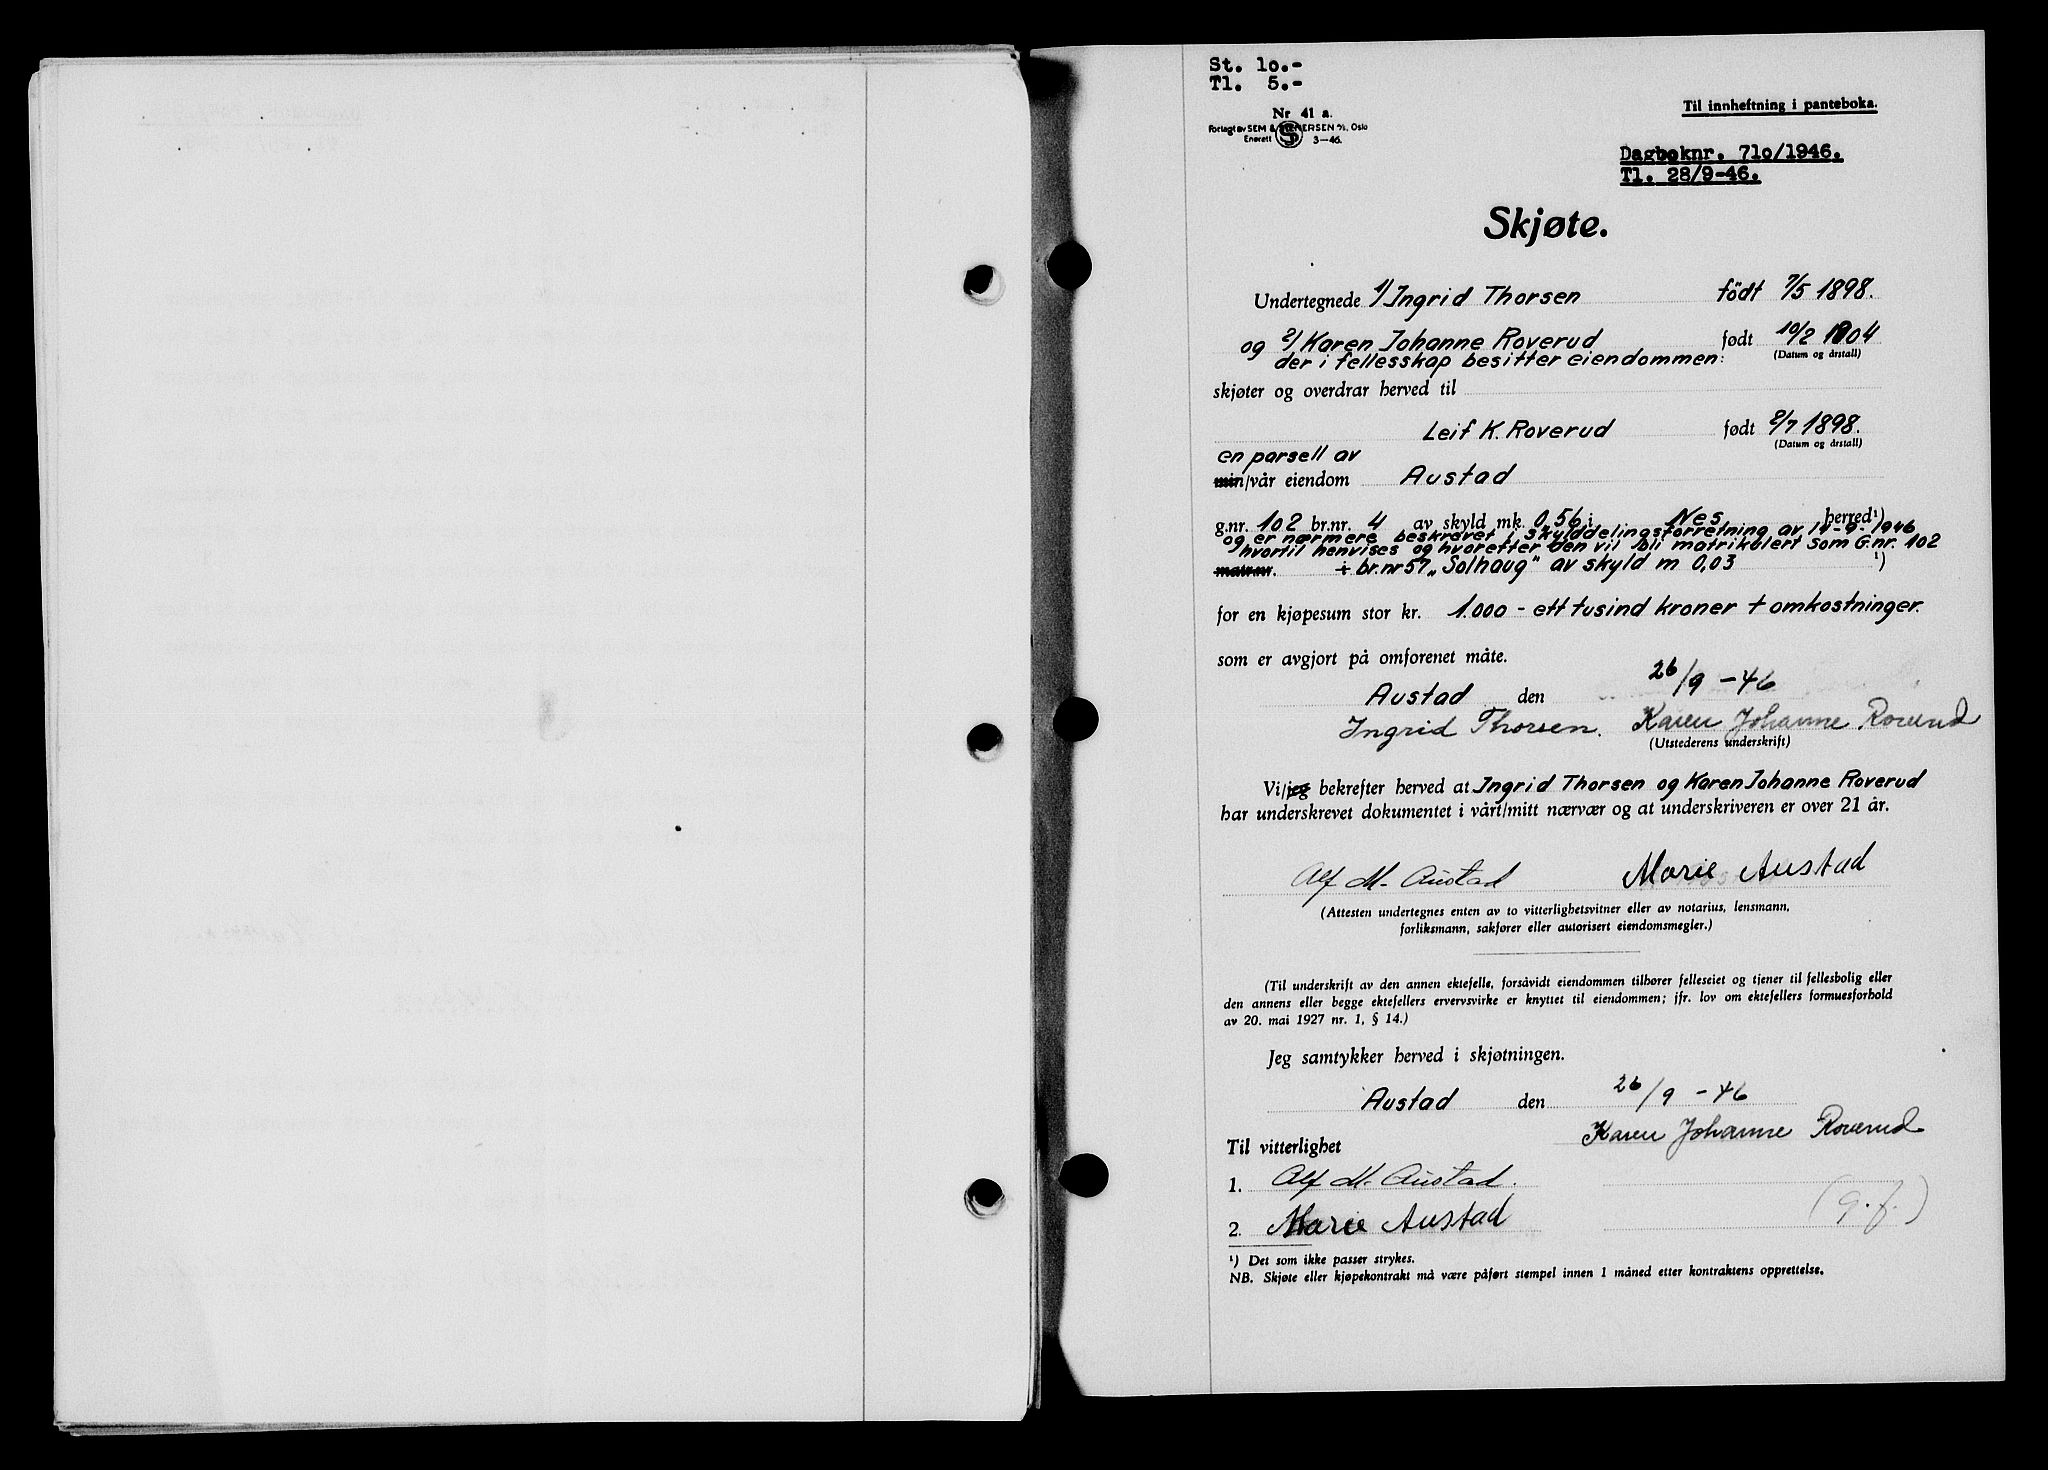 St. 10.-
Tl. 5.-
Nr 41 a.
Forlagt av SEM & STENERSEN A/S, Oslo
Enerett 3-46.
Til innheftning i panteboka.
Dagboknr. 710/1946.
Tl. 28/9-46.
Skjøte.
Undertegnede 1/ Ingrid Thorsen født 7/5 1898.
og 2/ Karen Johanne Roverud født 10/2 1904
(Datum og årstall)
der i fellesskap besitter eiendommen:
skjøter og overdrar herved til
Leif K. Roverud født 8/7 1898.
(Datum og årstall)
en parsell av
min/vår eiendom Austad
g.nr. 102 br.nr. 4 av skyld mk. 0,56 i Nes herred¹)
og er nærmere beskrevet i skylddelingsforretning av 14-9-1946
hvortil henvises og hvoretter den vil bli matrikulert som G.nr. 102
matr.nr. i br.nr 57 „Solhaug" av skyld m 0,03 ¹)
for en kjøpesum stor kr. 1.000 - ett tusind kroner + omkostninger.
som er avgjort på omforenet måte.
Austad den 26/9 - 46
Ingrid Thorsen. Karen Johanne Roverud
(Utstederens underskrift)
Vi/jeg bekrefter herved at Ingrid Thorsen og Karen Johanne Roverud
har underskrevet dokumentet i vårt/mitt nærvær og at underskriveren er over 21 år.
Alf M. Austad Marie Austad
(Attesten undertegnes enten av to vitterlighetsvitner eller av notarius, lensmann,
forliksmann, sakfører eller autorisert eiendomsmegler.)
(Til underskrift av den annen ektefelle, forsåvidt eiendommen tilhører felleseiet og tjener til fellesbolig eller
den annens eller begge ektefellers ervervsvirke er knyttet til eiendommen; jfr. lov om ektefellers formuesforhold
av 20. mai 1927 nr. 1, § 14.)
Jeg samtykker herved i skjøtningen.
Austad den 26/9 - 46
Karen Johanne Roverud
Til vitterlighet
1. Alf M. Austad.
(g.f.)
2. Marie Austad
¹) Det som ikke passer strykes.
NB. Skjøte eller kjøpekontrakt må være påført stempel innen 1 måned etter kontraktens opprettelse.